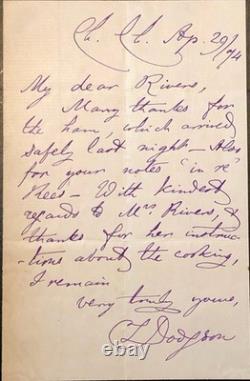 Ch. Ch. Ap. 29/74
My dear Rivers,
Many thanks for
the ham, which arrived
safely last night — Also
for your notes "in re"
Rees — With kindest
regards to Mrs Rivers, &
thanks for her instruc-
-tions about the cooking,
I remain
very truly yours,
CLDodgson